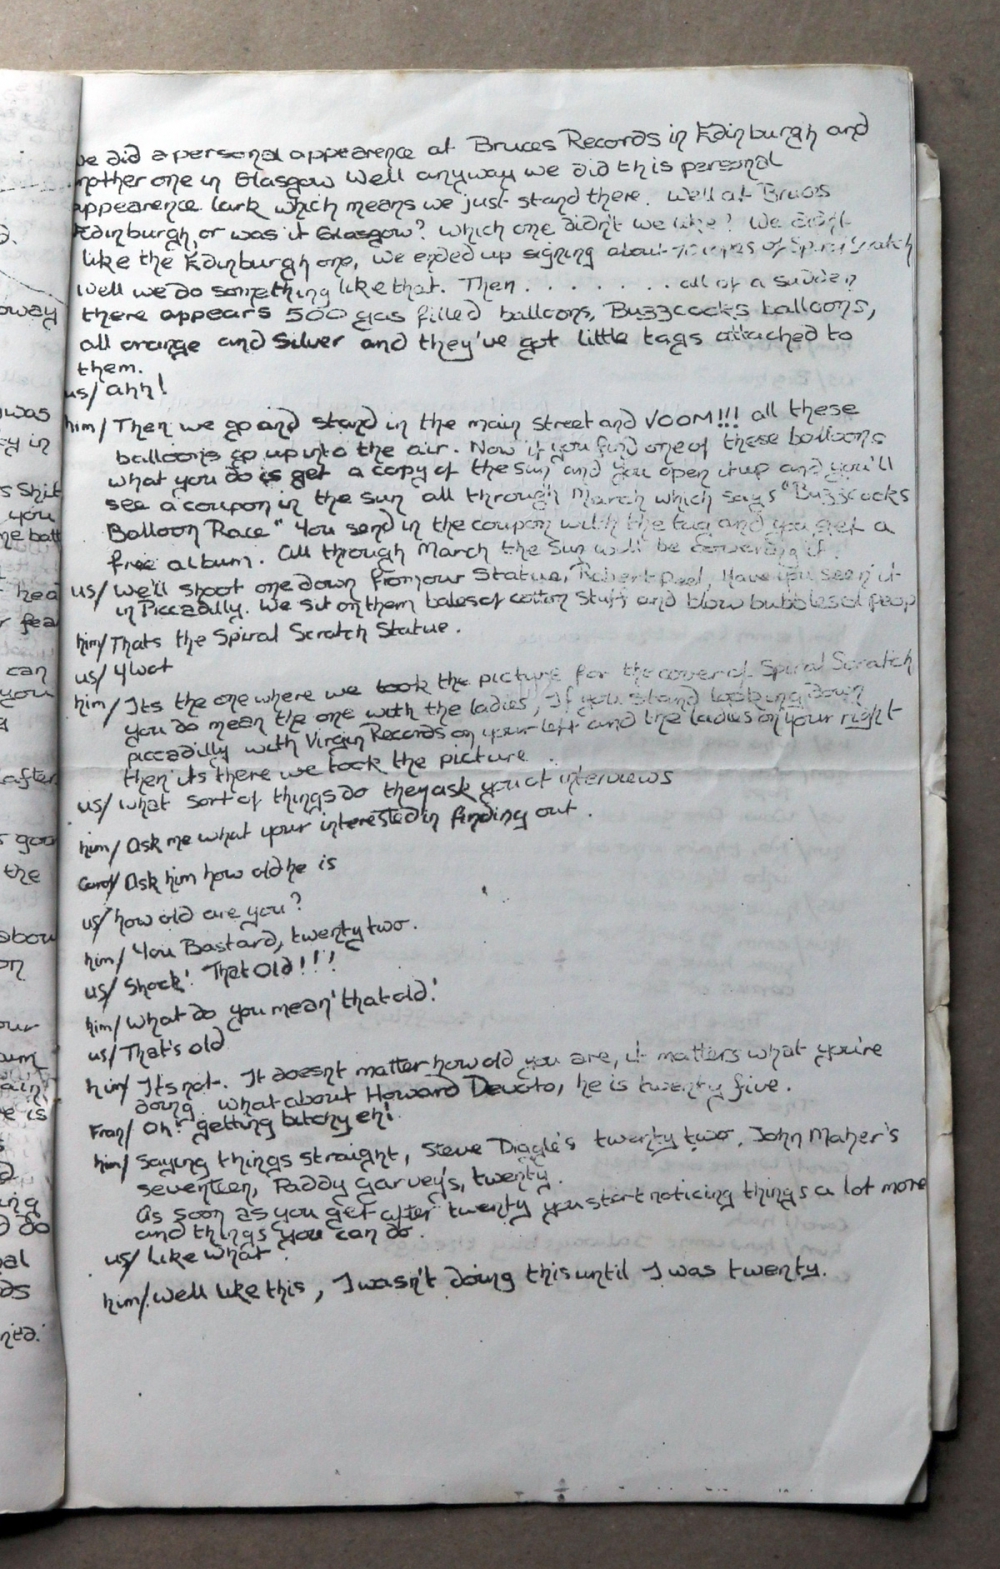 we did a personal appearence at Bruces Records in Edinburgh and
nother one in Glasgow Well anyway we did this personal
appearence lark which means we just stand there. Well at Bruces
Edinburgh, or was it Glasgow? Which one didn't we like? We didn't
like the Edinburgh one, we ended up signing about copies of Spiral Scratch
well we do something like that. Then . . . . . . . . all of a sudden
there appears 500 gas filled balloons, Buzzcocks balloons,
all orange and silver and they've got little tags attached to
them.
us/ ahh!
him/ Then we go and stand in the main street and VOOM!!! all these
balloons go up into the air. Now if you find one of these balloons
what you do is get a copy of the sun and you open it up and you'll
see a coupon in the sun all through March which says "Buzzcocks
Balloon Race" You send in the coupon with the tag and you get a
free album. All through March the Sun will be covering it.
us/ We'll shoot one down from our Statue, Robert Peel, Have you seen it
in Piccadilly. We sit on them bales of cotton stuff and blow bubbles at peop
him/ Thats the Spiral Scratch Statue.
us/ Ywot
him/ Its the one where we took the picture for the cover of Spiral Scratch
you do mean the one with the ladies, If you stand looking down
piccadilly with Virgin Records on your left and the ladies on your right
then its there we took the picture.
us/ what sort of things do they ask you at interviews
him/ Ask me what your interested in finding out.
Carol/ Ask him how old he is
us/ how old are you?
him/ You Bastard, twenty two.
us/ Shock! That Old!!!
him/ What do you mean 'that old'.
us/ That's old
him/ Its not. It doesnt matter how old you are, it matters what you're
doing. what about Howard Devoto, he is twenty five.
Fran/ Oh! getting bitchy eh!
him/ Saying things straight, Steve Diggle's twenty two, John Maher's
seventeen, Paddy Garvey's, twenty.
As soon as you get after twenty you start noticing things a lot more
and things you can do.
us/ Like What
him/ Well like this, I wasn't doing this until I was twenty.